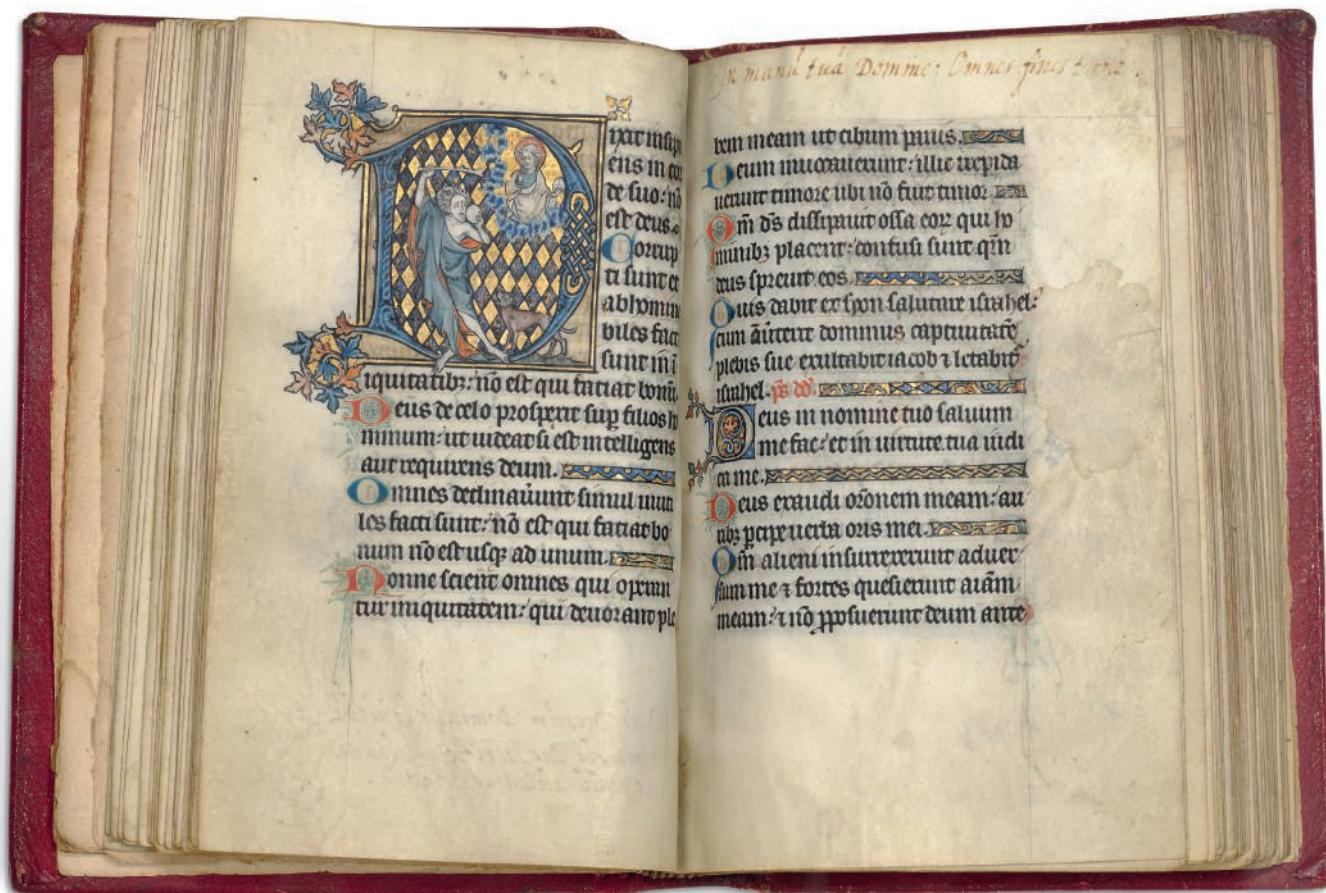 ixit insipi
ens in cor
de suo: nō
est deus.
Corrup
ti sunt et
abhomina
biles facti
sunt in i
iquitatibꝫ: nō est qui faciat bonū.
Deus de celo prospexit sup filios ho
minum: ut uideat si est intelligens
aut requirens deum.
Omnes declinauerunt simul inuti
les facti sunt: nō est qui faciat bo
num nō est usqꝫ ad unum.
Nonne scient omnes qui operan
tur iniquitatem: qui deuorant ple
In manū tuā Domine: Omnes fines terræ.
bem meam ut cibum panis.
Deum inuocauerunt: illic trepida
uerunt timore ubi nō fuit timor.
Qm̄ ds̄ dissipauit ossa eoꝝ qui ho
minibꝫ placent: confusi sunt qm̄
deus spreuit eos.
Quis dabit ex syon salutare israhel:
cum auerterit dominus captiuitatē
plebis sue exultabit iacob ⁊ letabit᷑
israhel. ps̄ dd̄.
Deus in nomine tuo saluum
me fac: et in uirtute tua iudi
ca me.
Deus exaudi orōnem meam: au
ribꝫ pcipe uerba oris mei.
Qm̄ alieni insurrexerunt aduer
sum me ⁊ fortes quesierunt aīam
meam: ⁊ nō pposuerunt deum ante